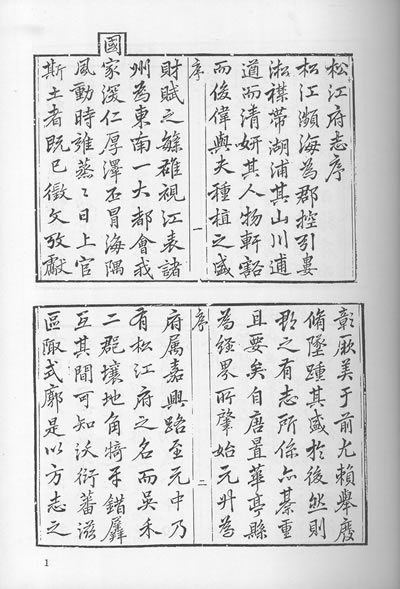 松江府志序
松江瀕海為郡控引婁
淞襟帶湖浦其山川
而清妍其人物軒豁
而俊偉與夫種植之盛
序
一
財賦之緐雄視江表諸
州為東南一大都會我
國家深仁厚澤丕冒海隅
風動時雍蒸〻日上官
斯土者既已徵文攷獻
彰厥美于前尤賴舉廢
脩墜踵其盛於後然則
郡之有志所係亦綦重
且要矣自唐置華亭縣
為經界所肇始元升為
序
二
府属嘉興路至元中乃
有松江府之名而吳禾
二郡壤地角犄牙錯
互其間可知沃衍蕃滋
區陬式廓是以方志之
1